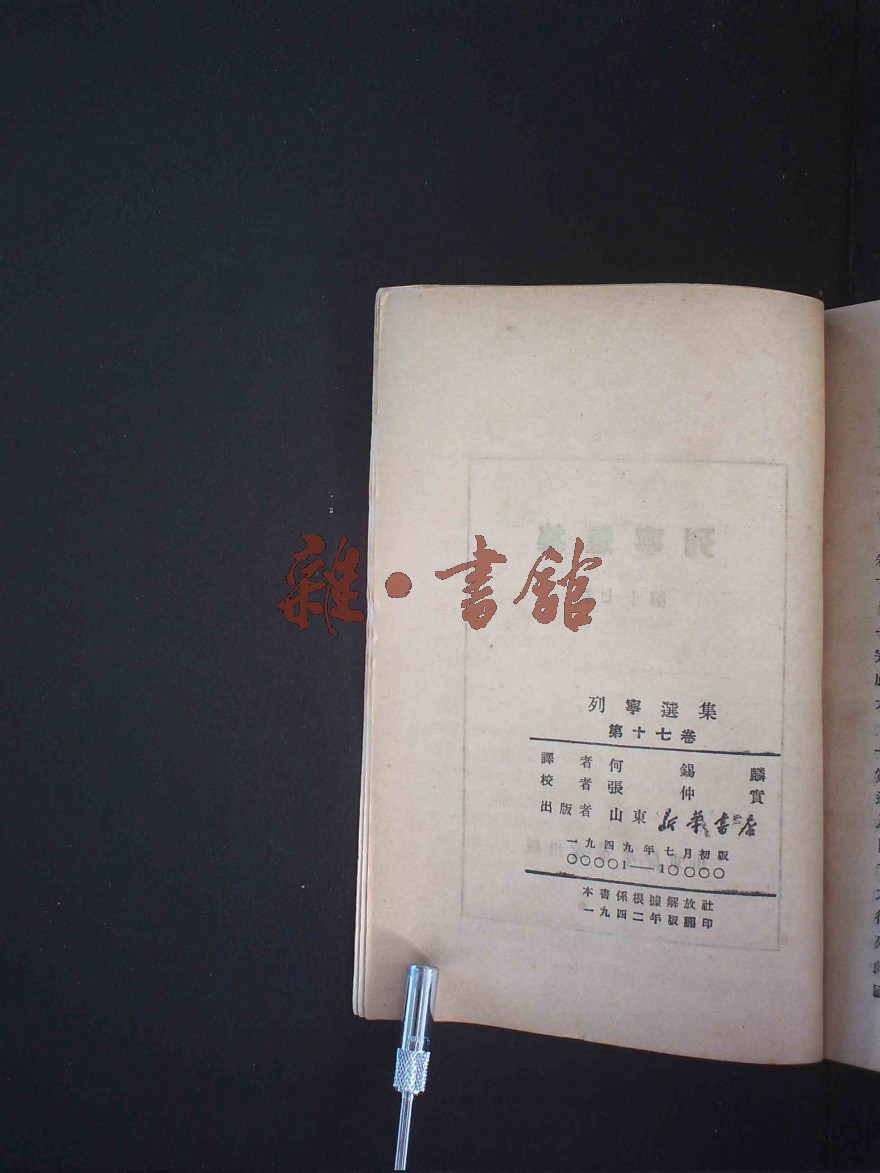 雜·書舘
列寧選集
第十七卷
譯者何錫麟
校者張仲實
出版者 山東新華書店
一九四九年七月初版
00001—10000
本書係根據解放社
一九四二年版翻印